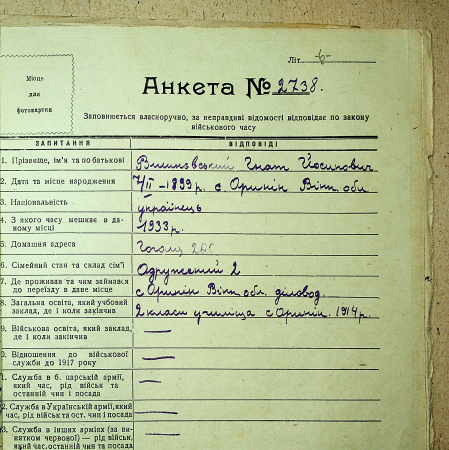 Літ. б-
Місце
для
фотокартки
Анкета № 2738.
Заповнюється власноручно, за неправдиві відомості відповідає по закону
військового часу
ЗАПИТАННЯ ВІДПОВІДІ
1. Прізвище, ім'я та по батькові Гнат Йосипович
2. Дата та місце народження 7/II – 1899 р. с. Оринін Він. обл
3. Національність українець
4. З якого часу мешкає в да-
ному місці 1933 р.
5. Домашня адреса Гоголя
6. Сімейний стан та склад сім'ї Одружений 2
7. Де проживав та чим займався
до переїзду в дане місце с. Оринін Він. обл. діловод.
8. Загальна освіта, який учбовий
заклад, де і коли закінчив 2 класи училища с. Оринін. 1914 р.
9. Військова освіта, який заклад,
де і коли закінчив —
0. Відношення до військової
служби до 1917 року —
1. Служба в б. царській армії,
який час, рід військ та
останній чин і посада —
2. Служба в Українській армії, який
час, рід військ та ост. чин і посада —
3. Служба в інших арміях (за ви-
нятком червоної) — рід військ,
який час, останній чин та посада —